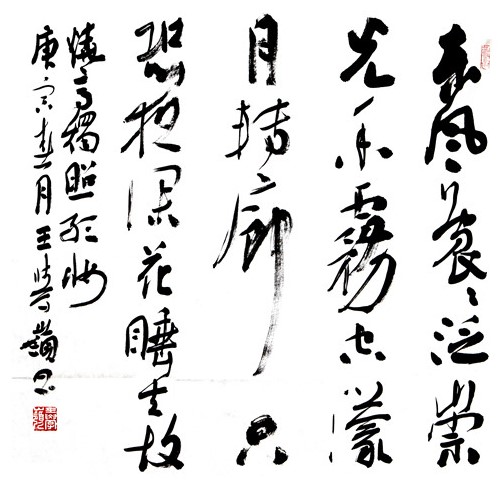 東風袅袅泛崇
光香霧空濛
月轉廊只
恐夜深花睡去故
燒高燭照紅妝
庚寅春月王